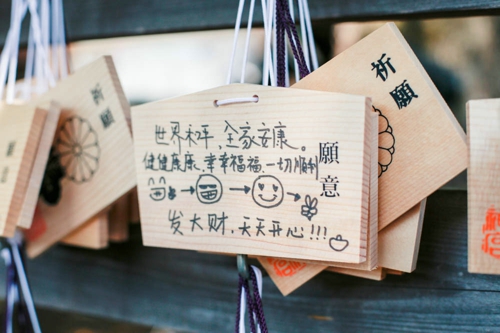 世界和平，全家安康。
健健康康、幸幸福福、一切順利
发大财，天天开心!!!
願意
祈願
願